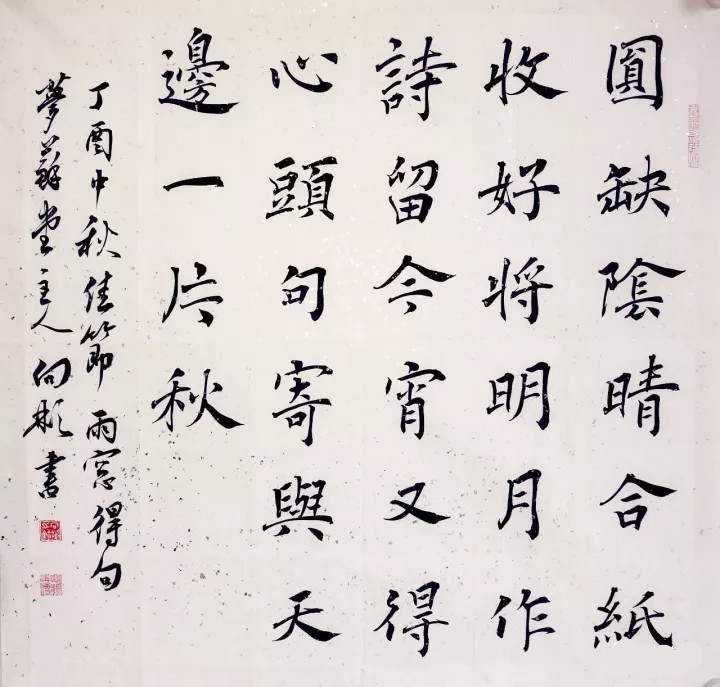 圓缺陰晴合紙
收好將明月作
詩留今宵又得
心頭句寄與天
邊一片秋
丁酉中秋佳節雨窓得句
夢蘇堂主人向彬書